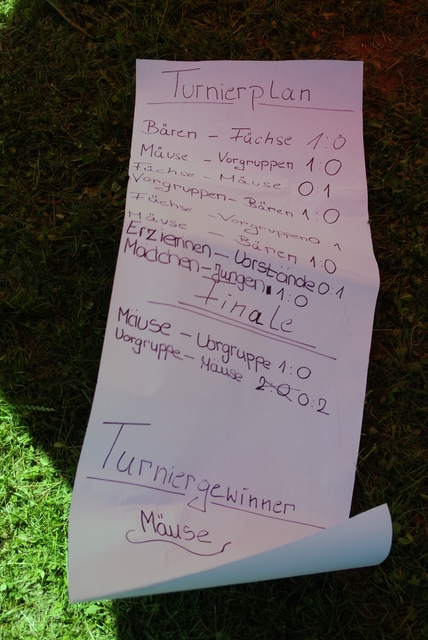 Turnierplan
Bären - Füchse 1:0
Mäuse - Vorgruppen 1:0
Füchse - Mäuse 0:1
Vorgruppen - Bären 1:0
Füchse - Vorgruppen 0:1
Mäuse - Bären 1:0
Erzieinnen - Vorstände 0:1
Mädchen - Jungen 1:0
Finale
Mäuse - Vorgruppe 1:0
Vorgruppe - Mäuse 2:0 0:2
Turniergewinner
Mäuse